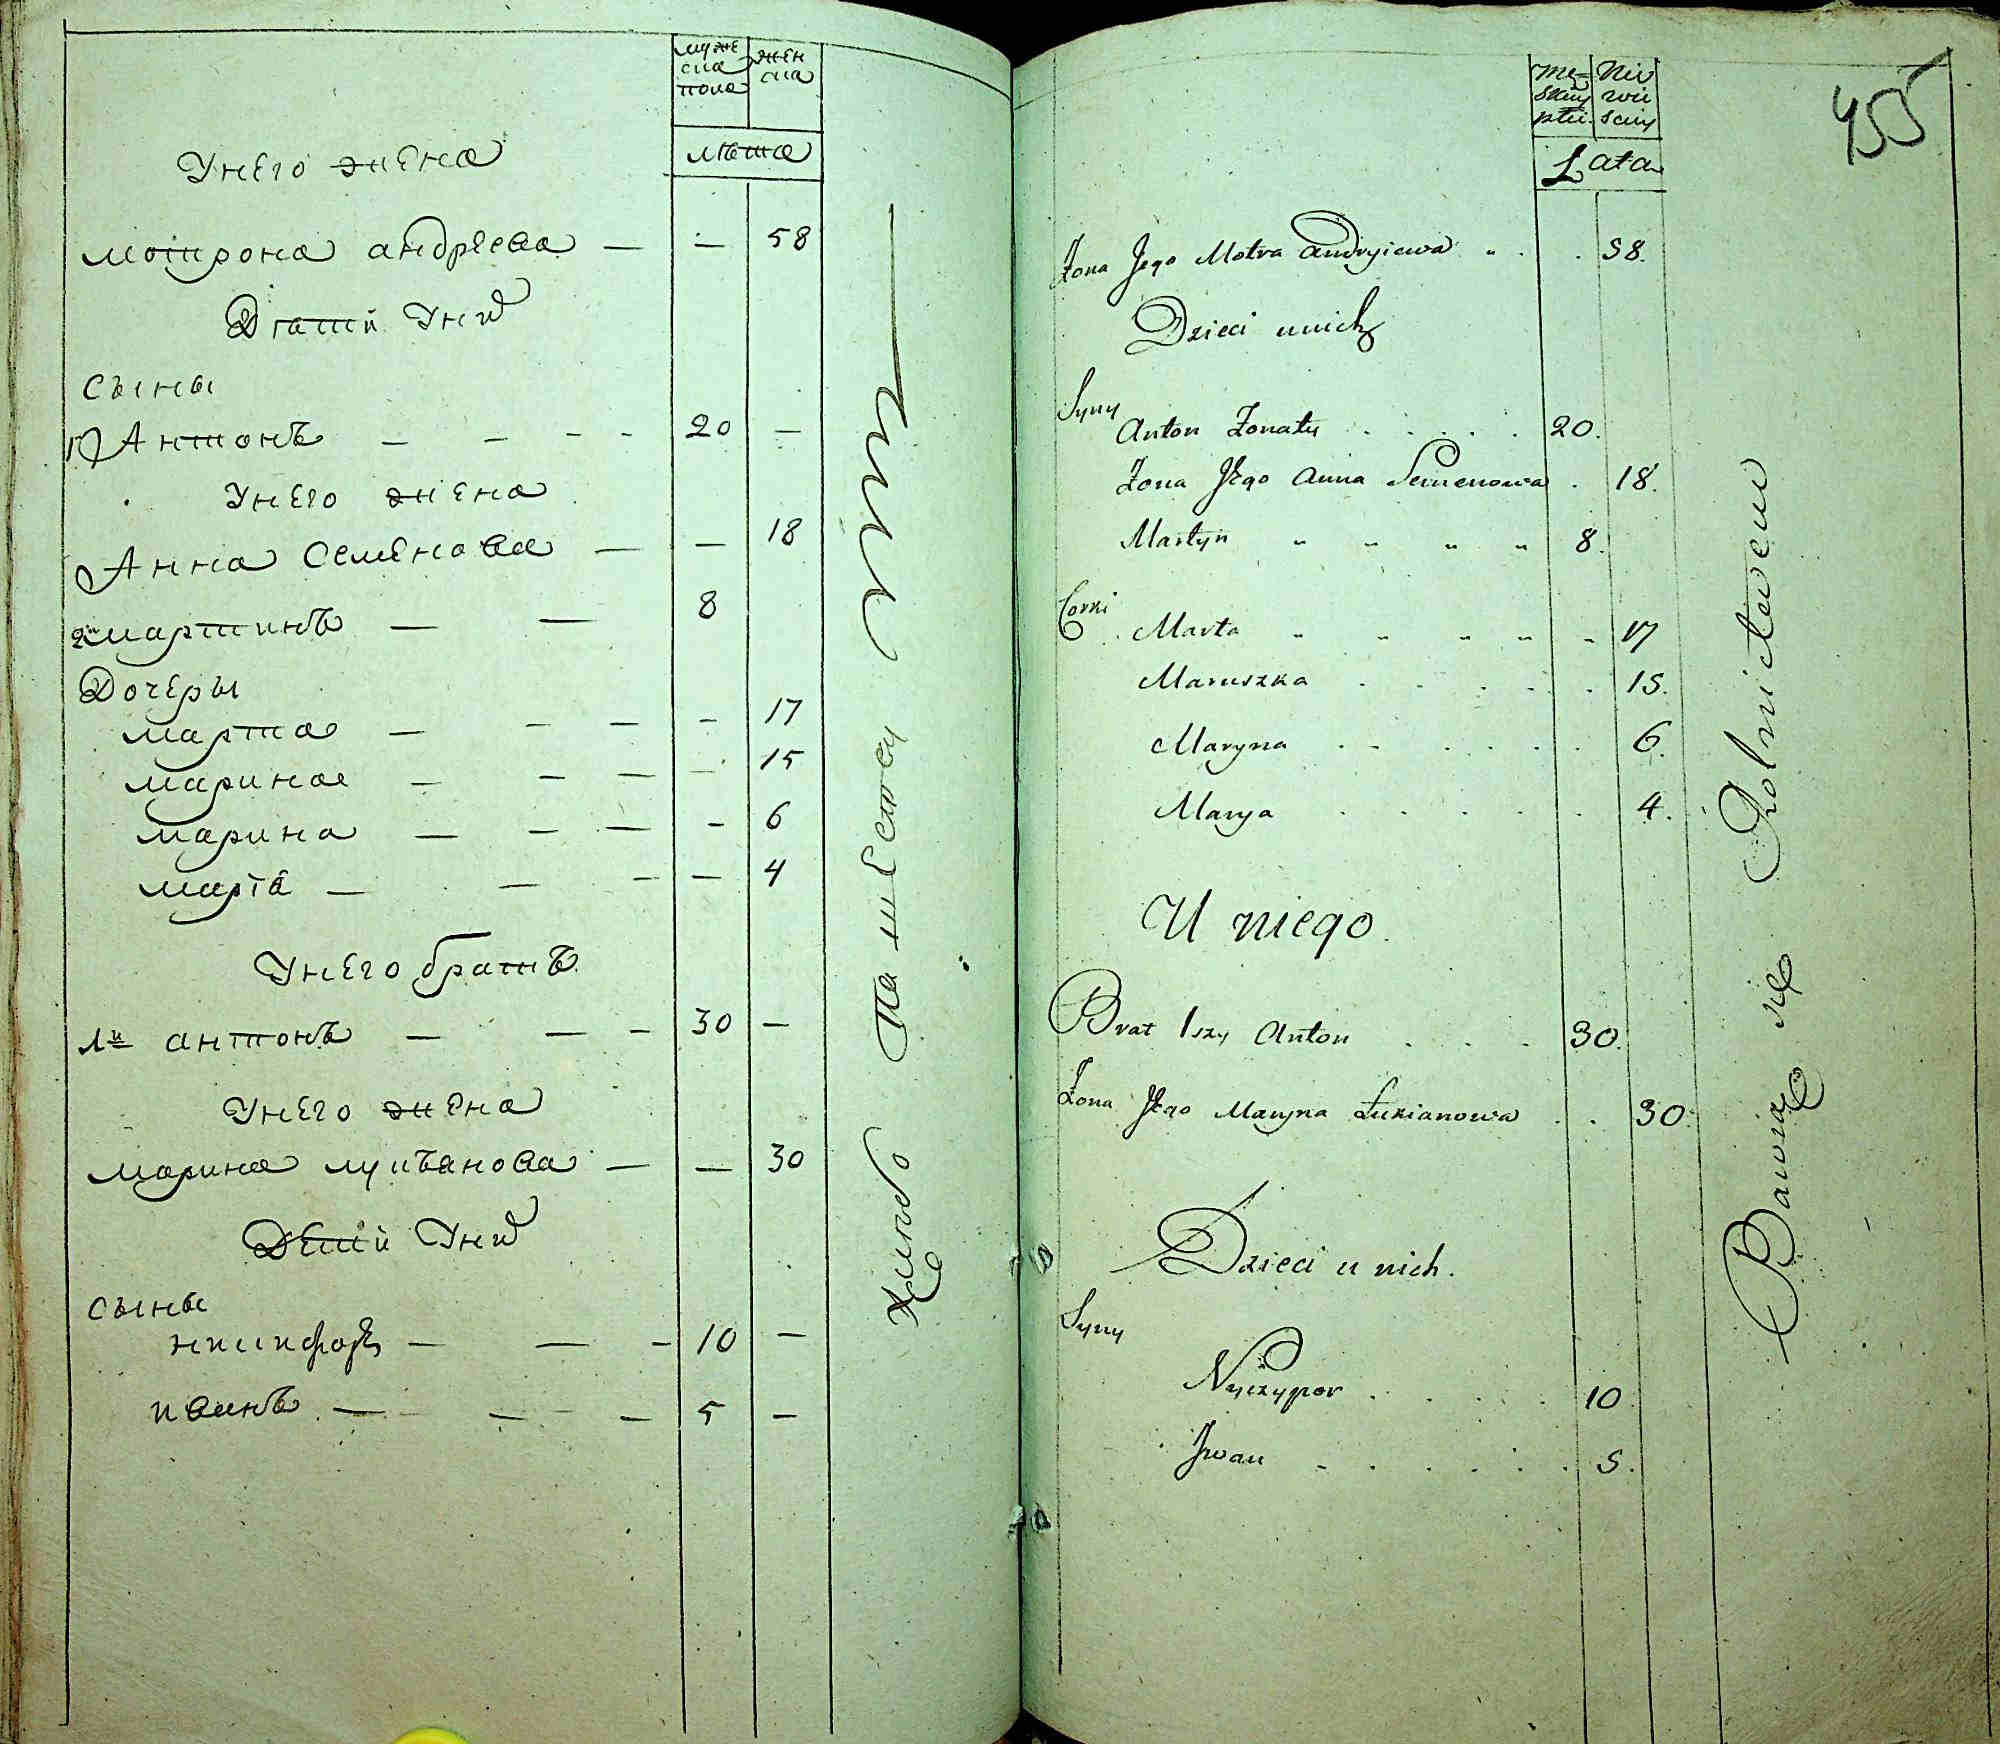 муже
ска
пола
жен
ска
лѣта
У него жена
мотрона андреева — — 58
Дѣтий У них
сыны
1й Антонъ — — — — 20 —
У него жена
Анна Семенова — — 18
2й мартинъ — — 8
Дочеры
марта — — — — 17
марина — — — — 15
марина — — — — 6
мария — — — — 4
У него братъ
1й антонъ — — — 30 —
У него жена
марина лукъанова — — 30
Дѣтий У них
сыны
никифоръ — — — 10 —
иванъ — — — 5 —
455
Męz-
skiey
płci
Nie
wie
sciey
Lata
Żona Jego Motra Andryiewa 58.
Dzieci u nich
Syny
Anton Żonaty 20.
Żona Jego Anna Semenowa 18.
Martyn 8.
Corki
Marta 17
Maruszka 15.
Maryna 6.
Marya 4.
U niego
Brat 1szy Anton 30.
Żona Jego Maryna Łukianowa 30.
Dzieci u nich.
Syny
Nyczypor 10
Jwan 5.
Bawią się Rolnictwem